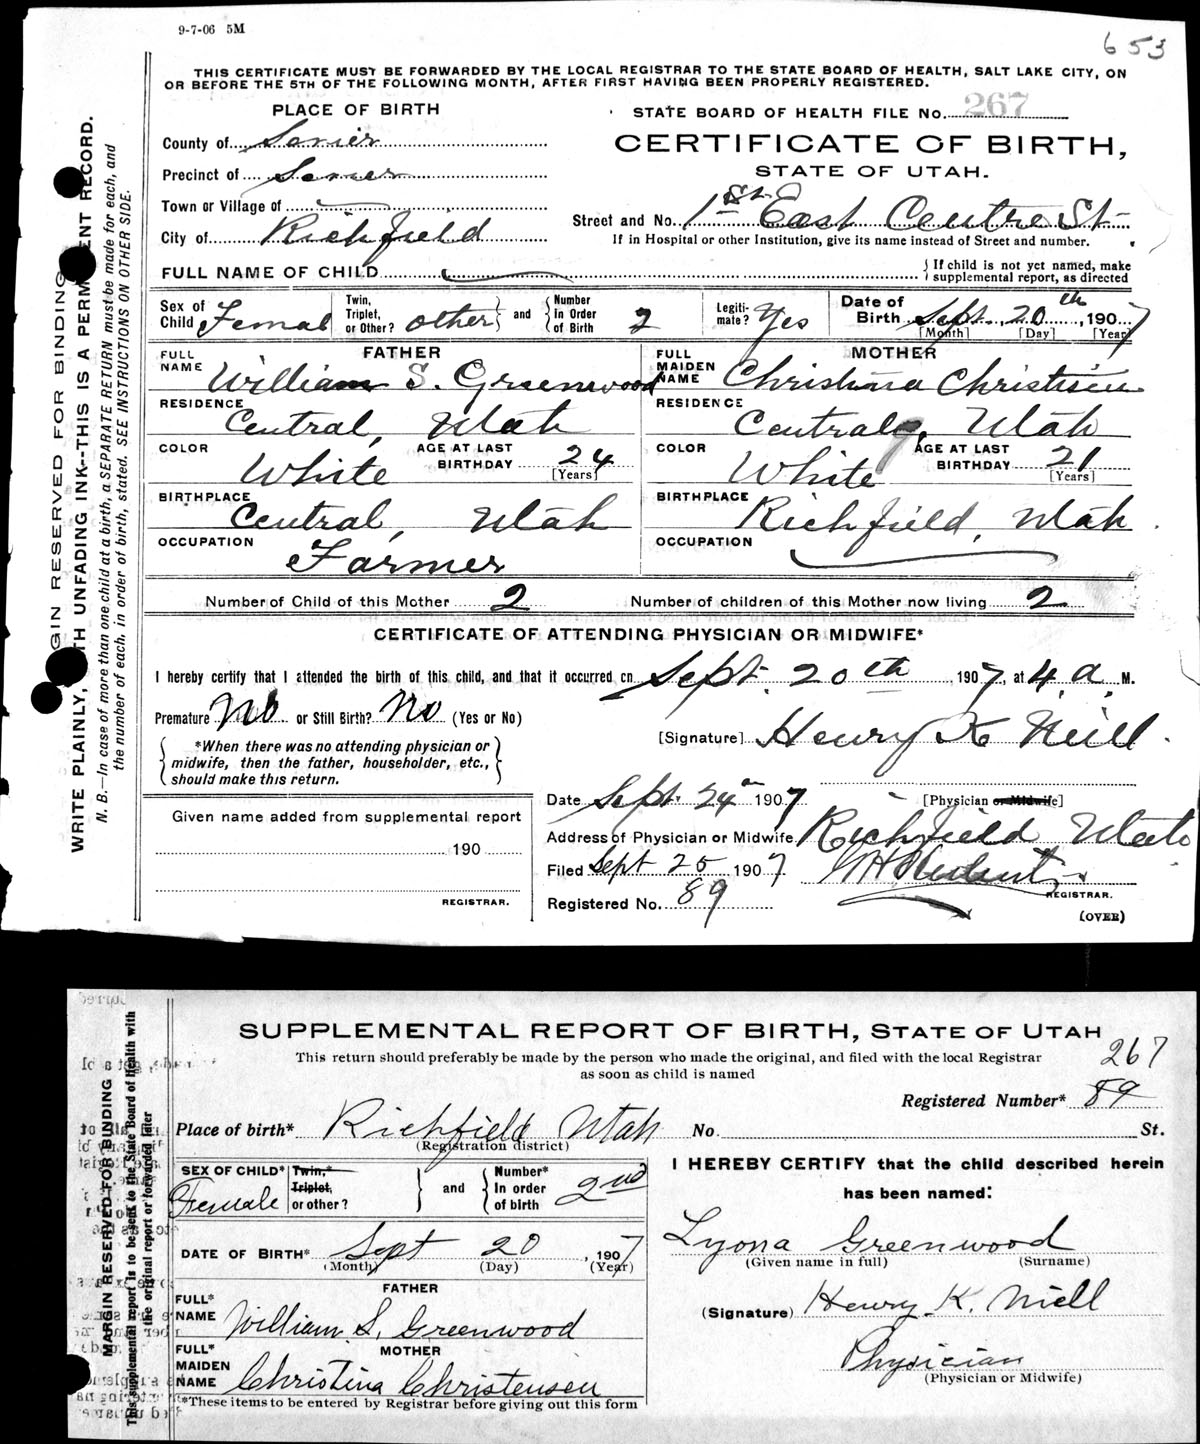 9-7-06 5M
653
THIS CERTIFICATE MUST BE FORWARDED BY THE LOCAL REGISTRAR TO THE STATE BOARD OF HEALTH, SALT LAKE CITY, ON
OR BEFORE THE 5TH OF THE FOLLOWING MONTH, AFTER FIRST HAVING BEEN PROPERLY REGISTERED.
PLACE OF BIRTH
STATE BOARD OF HEALTH FILE No. 267
County of Sevier
CERTIFICATE OF BIRTH,
Precinct of Sevier
STATE OF UTAH.
Town or Village of
Street and No. 1st St. East Centre St
City of Richfield
If in Hospital or other Institution, give its name instead of Street and number.
FULL NAME OF CHILD
If child is not yet named, make
supplemental report, as directed
Sex of Child Femal
Twin, Triplet, or Other? other and Number In Order of Birth 2
Legitimate? Yes
Date of Birth Sept. 20th, 1907
[Month] [Day] [Year]
FATHER
FULL NAME William S. Greenwood
RESIDENCE Central, Utah
COLOR White
AGE AT LAST BIRTHDAY 24 [Years]
BIRTHPLACE Central, Utah
OCCUPATION Farmer
MOTHER
FULL MAIDEN NAME Christina Christisen
RESIDENCE Central, Utah
COLOR White
AGE AT LAST BIRTHDAY 21 [Years]
BIRTHPLACE Richfield, Utah
OCCUPATION
Number of Child of this Mother 2 Number of children of this Mother now living 2
CERTIFICATE OF ATTENDING PHYSICIAN OR MIDWIFE*
I hereby certify that I attended the birth of this child, and that it occurred on Sept. 20th, 1907, at 4 a. M.
Premature No or Still Birth? No (Yes or No)
[Signature] Henry K Neill.
*When there was no attending physician or
midwife, then the father, householder, etc.,
should make this return.
Date Sept. 24th 1907
[Physician or Midwife]
Given name added from supplemental report
190
REGISTRAR.
Address of Physician or Midwife Richfield Utah
Filed Sept 25, 1907
REGISTRAR.
Registered No. 89
(OVER)
MARGIN RESERVED FOR BINDING
WRITE PLAINLY, WITH UNFADING INK--THIS IS A PERMANENT RECORD.
N. B.—In case of more than one child at a birth, a SEPARATE RETURN must be made for each, and
the number of each, in order of birth, stated. SEE INSTRUCTIONS ON OTHER SIDE.
SUPPLEMENTAL REPORT OF BIRTH, STATE OF UTAH
This return should preferably be made by the person who made the original, and filed with the local Registrar
as soon as child is named
267
Registered Number* 89
Place of birth* Richfield Utah No. St.
(Registration district)
SEX OF CHILD* Female
Twin,* Triplet, or other? and Number* In order of birth 2nd
DATE OF BIRTH* Sept 20, 1907
(Month) (Day) (Year)
FATHER
FULL* NAME William S. Greenwood
MOTHER
FULL* MAIDEN NAME Christina Christensen
*These items to be entered by Registrar before giving out this form
I HEREBY CERTIFY that the child described herein
has been named:
Lyona Greenwood
(Given name in full) (Surname)
(Signature) Henry K. Niell
Physician
(Physician or Midwife)
MARGIN RESERVED FOR BINDING
This supplemental report is to be sent to the State Board of Health with
the original report or forwarded later